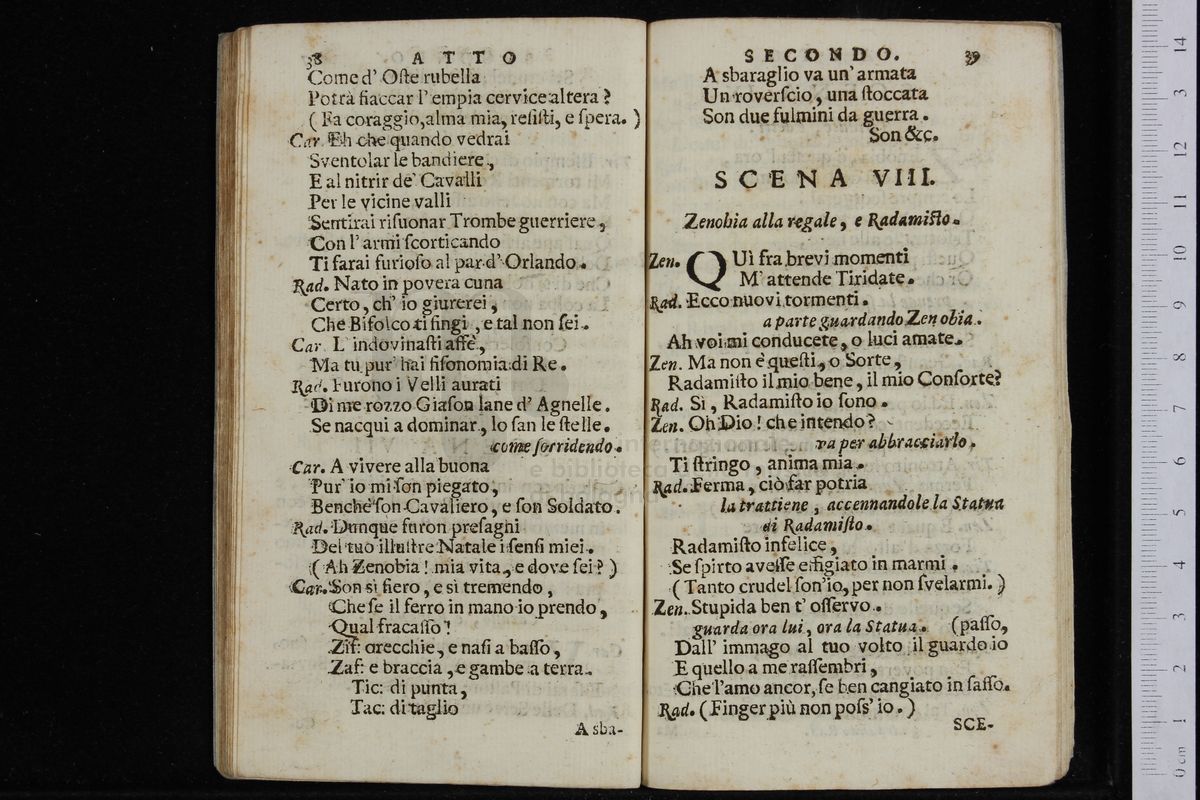 38 ATTO
Come d' Oſte rubella
Potrà fiaccar l' empia cervice altera?
( Fa coraggio, alma mia, reſiſti, e ſpera. )
Car. Eh che quando vedrai
Sventolar le bandiere,
E al nitrir de' Cavalli
Per le vicine valli
Sentirai riſuonar Trombe guerriere,
Con l' armi ſcorticando
Ti farai furioſo al par d' Orlando.
Rad. Nato in povera cuna
Certo, ch' io giurerei,
Che Bifolco ti fingi, e tal non ſei.
Car. L' indovinaſti affè,
Ma tu pur' hai fiſonomia di Re.
Rad. Furono i Velli aurati
Di me rozzo Giaſon lane d' Agnelle.
Se nacqui a dominar, lo ſan le ſtelle.
come ſorridendo.
Car. A vivere alla buona
Pur' io mi ſon piegato,
Benchè ſon Cavaliero, e ſon Soldato.
Rad. Dunque furon preſaghi
Del tuo illuſtre Natale i ſenſi miei.
( Ah Zenobia! mia vita, e dove ſei? )
Car. Son sì fiero, e sì tremendo,
Che ſe il ferro in mano io prendo,
Qual fracaſſo!
Zif: orecchie, e naſi a baſſo,
Zaf: e braccia, e gambe a terra.
Tic: di punta,
Tac: di taglio
A sba-
SECONDO. 39
A sbaraglio va un' armata
Un roverſcio, una ſtoccata
Son due fulmini da guerra.
Son &c.
SCENA VIII.
Zenobia alla regale, e Radamiſto.
Zen. QUì fra brevi momenti
M' attende Tiridate.
Rad. Ecco nuovi tormenti.
a parte guardando Zenobia.
Ah voi mi conducete, o luci amate.
Zen. Ma non è queſti, o Sorte,
Radamiſto il mio bene, il mio Conſorte?
Rad. Sì, Radamiſto io ſono.
Zen. Oh Dio! che intendo?
va per abbracciarlo.
Ti ſtringo, anima mia.
Rad. Ferma, ciò far potria
la trattiene, accennandole la Statua
di Radamiſto.
Radamiſto infelice,
Se ſpirto aveſſe effigiato in marmi.
( Tanto crudel ſon' io, per non ſvelarmi. )
Zen. Stupida ben t' oſſervo.
guarda ora lui, ora la Statua. (paſſo,
Dall' immago al tuo volto il guardo io
E quello a me raſſembri,
Che l'amo ancor, ſe ben cangiato in ſaſſo.
Rad. ( Finger più non poſs' io. )
SCE-